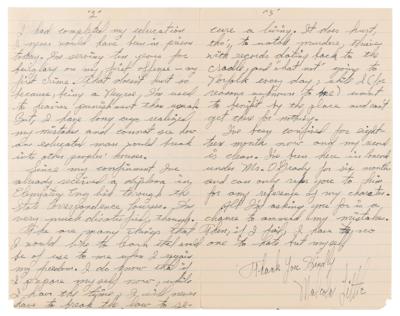 "2"
I had completed my education
I never would have been in prison
today. I'm serving ten years for
burglary on my first offense - my
first crime. That doesn't hurt so
because, being a Negro, I'm used
to
But, I have long ago realized
my mistakes and cannot see how
an educated man would break
into other peoples' houses.
Since my confinement I've
already received a diploma in
Elementary English through the
State Correspondence Courses. I'm
very much dissatisfied, though.
There are many things that
I would like to learn that would
be of use to me when I regain
my freedom. I do know that if
I prepare myself now, while
I have the time, I will never
have to break the law to se-
"3"
cure a living. It does hurt,
tho, to watch murderers, thieves
with records dating back to the
cradle, and what not going to
Norfolk every day; while I (for
reasons unknown to me) want
to benefit by the place and can't
get there for nothing.
I've been confined for eight-
teen month now and my record
is clean. I've been here in
under Mr. O'Brady for six months
and can only refer you to him
for any reference of my character.
All I'm asking you for is a
chance to amend my mistakes.
Then, if I fail, I have no
one to hate but myself.
Thank You Kindly
Malcolm Little